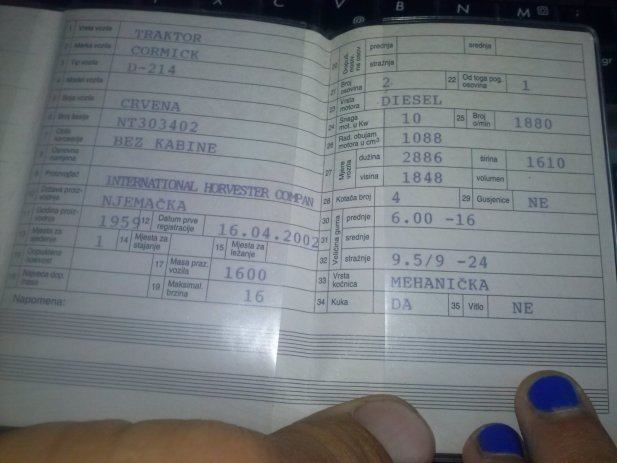 1 Vrsta vozila TRAKTOR
2 Marka vozila CORMICK
3 Tip vozila D-214
4 Model vozila
5 Boja vozila CRVENA
6 Broj šasije NT303402
7 Oblik karoserije BEZ KABINE
8 Osnovna namjena
9 Proizvođač INTERNATIONAL HORVESTER COMPAN
10 Država proizvodnje NJEMAČKA
11 Godina proizvodnje 1959 12 Datum prve registracije 16.04.2002
13 Mjesta za sjedenje 1 14 Mjesta za stajanje 15 Mjesta za ležanje
16 Dopuštena nosivost 17 Masa praz. vozila 1600
18 Najveća dop. masa 19 Maksimal. brzina 16
Napomena:
20 Dopušt. optereć. na osov. prednja srednja
stražnja
21 Broj osovina 2 22 Od toga pog. osovina 1
23 Vrsta motora DIESEL
24 Snaga mot. u Kw 10 25 Broj o/min 1880
26 Rad. obujam motora u cm³ 1088
27 Mjere vozila dužina 2886 širina 1610
visina 1848 volumen
28 Kotača broj 4 29 Gusjenice NE
30 Veličina guma prednje 6.00 -16
31 srednje
32 stražnje 9.5/9 -24
33 Vrsta kočnica MEHANIČKA
34 Kuka DA 35 Vitlo NE
C V B N M